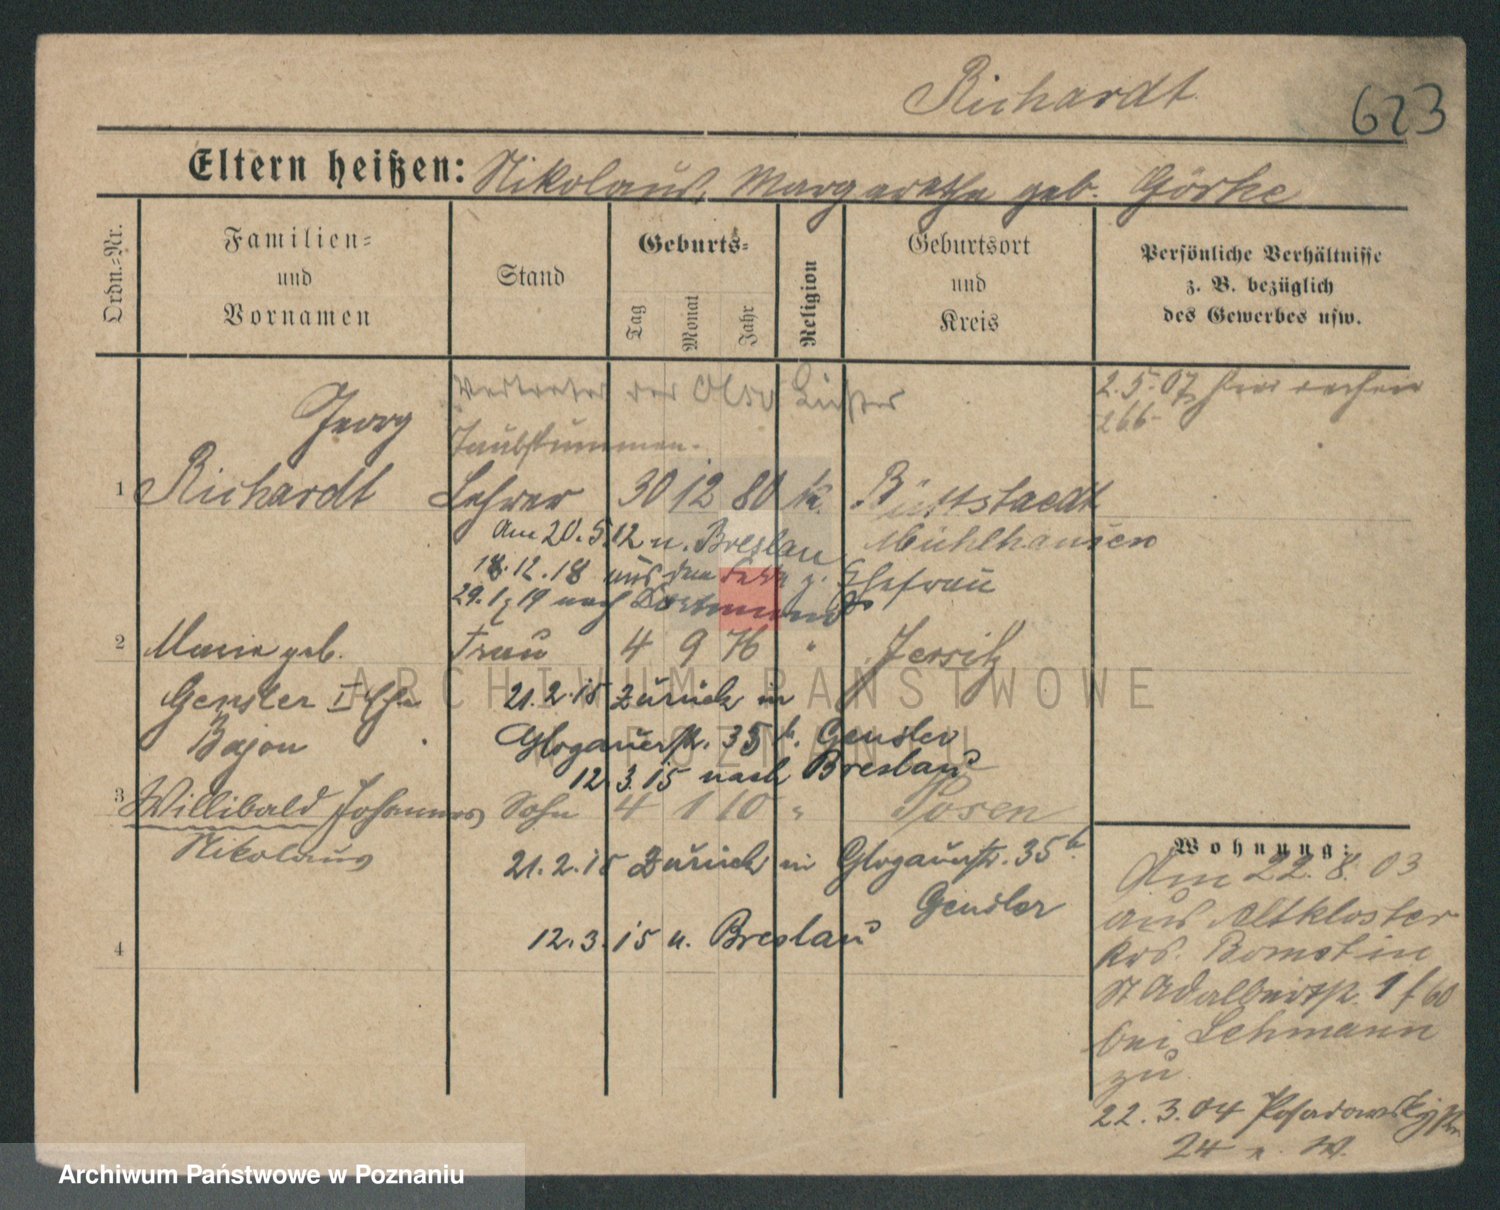 Richardt
623
Eltern heißen: Nikolaus, Margarethe geb. Görke
Ordn.=Nr.
Familien=
und
Vornamen
Stand
Geburts=
Tag
Monat
Jahr
Religion
Geburtsort
und
Kreis
Persönliche Verhältnisse
z. B. bezüglich
des Gewerbes usw.
Vertreter der
2.5.07
Taubstummen-
266
Georg
1 Richardt Lehrer 30 12 80 k. Büttstaedt
Am 20.5.12 n. Breslau Mühlhausen
18.12.18 aus dem Felde z. Ehefrau
29.1.19 nach Dortmund
2 Marie geb. Frau 4 9 76 " Jersitz
Gensler I Ehe 21.2.15 Zurück in
Bajon Glogauerstr. 35 b. Gensler
12.3.15 nach Breslau
3 Willibald Johannes Sohn 4 1 10 " Posen
Nikolaus
21.2.15 Zurück in Glogauerstr. 35 b.
Gensler
4 12.3.15 n. Breslau
Wohnung:
Am 22.8.03
aus Altkloster
Krs. Bomst in
St Adalbertstr. 1
bei Lehmann
zu
22.3.04 Posadowskystr
24 n. W.
ARCHIWUM PAŃSTWOWE
W POZNANIU
Archiwum Państwowe w Poznaniu